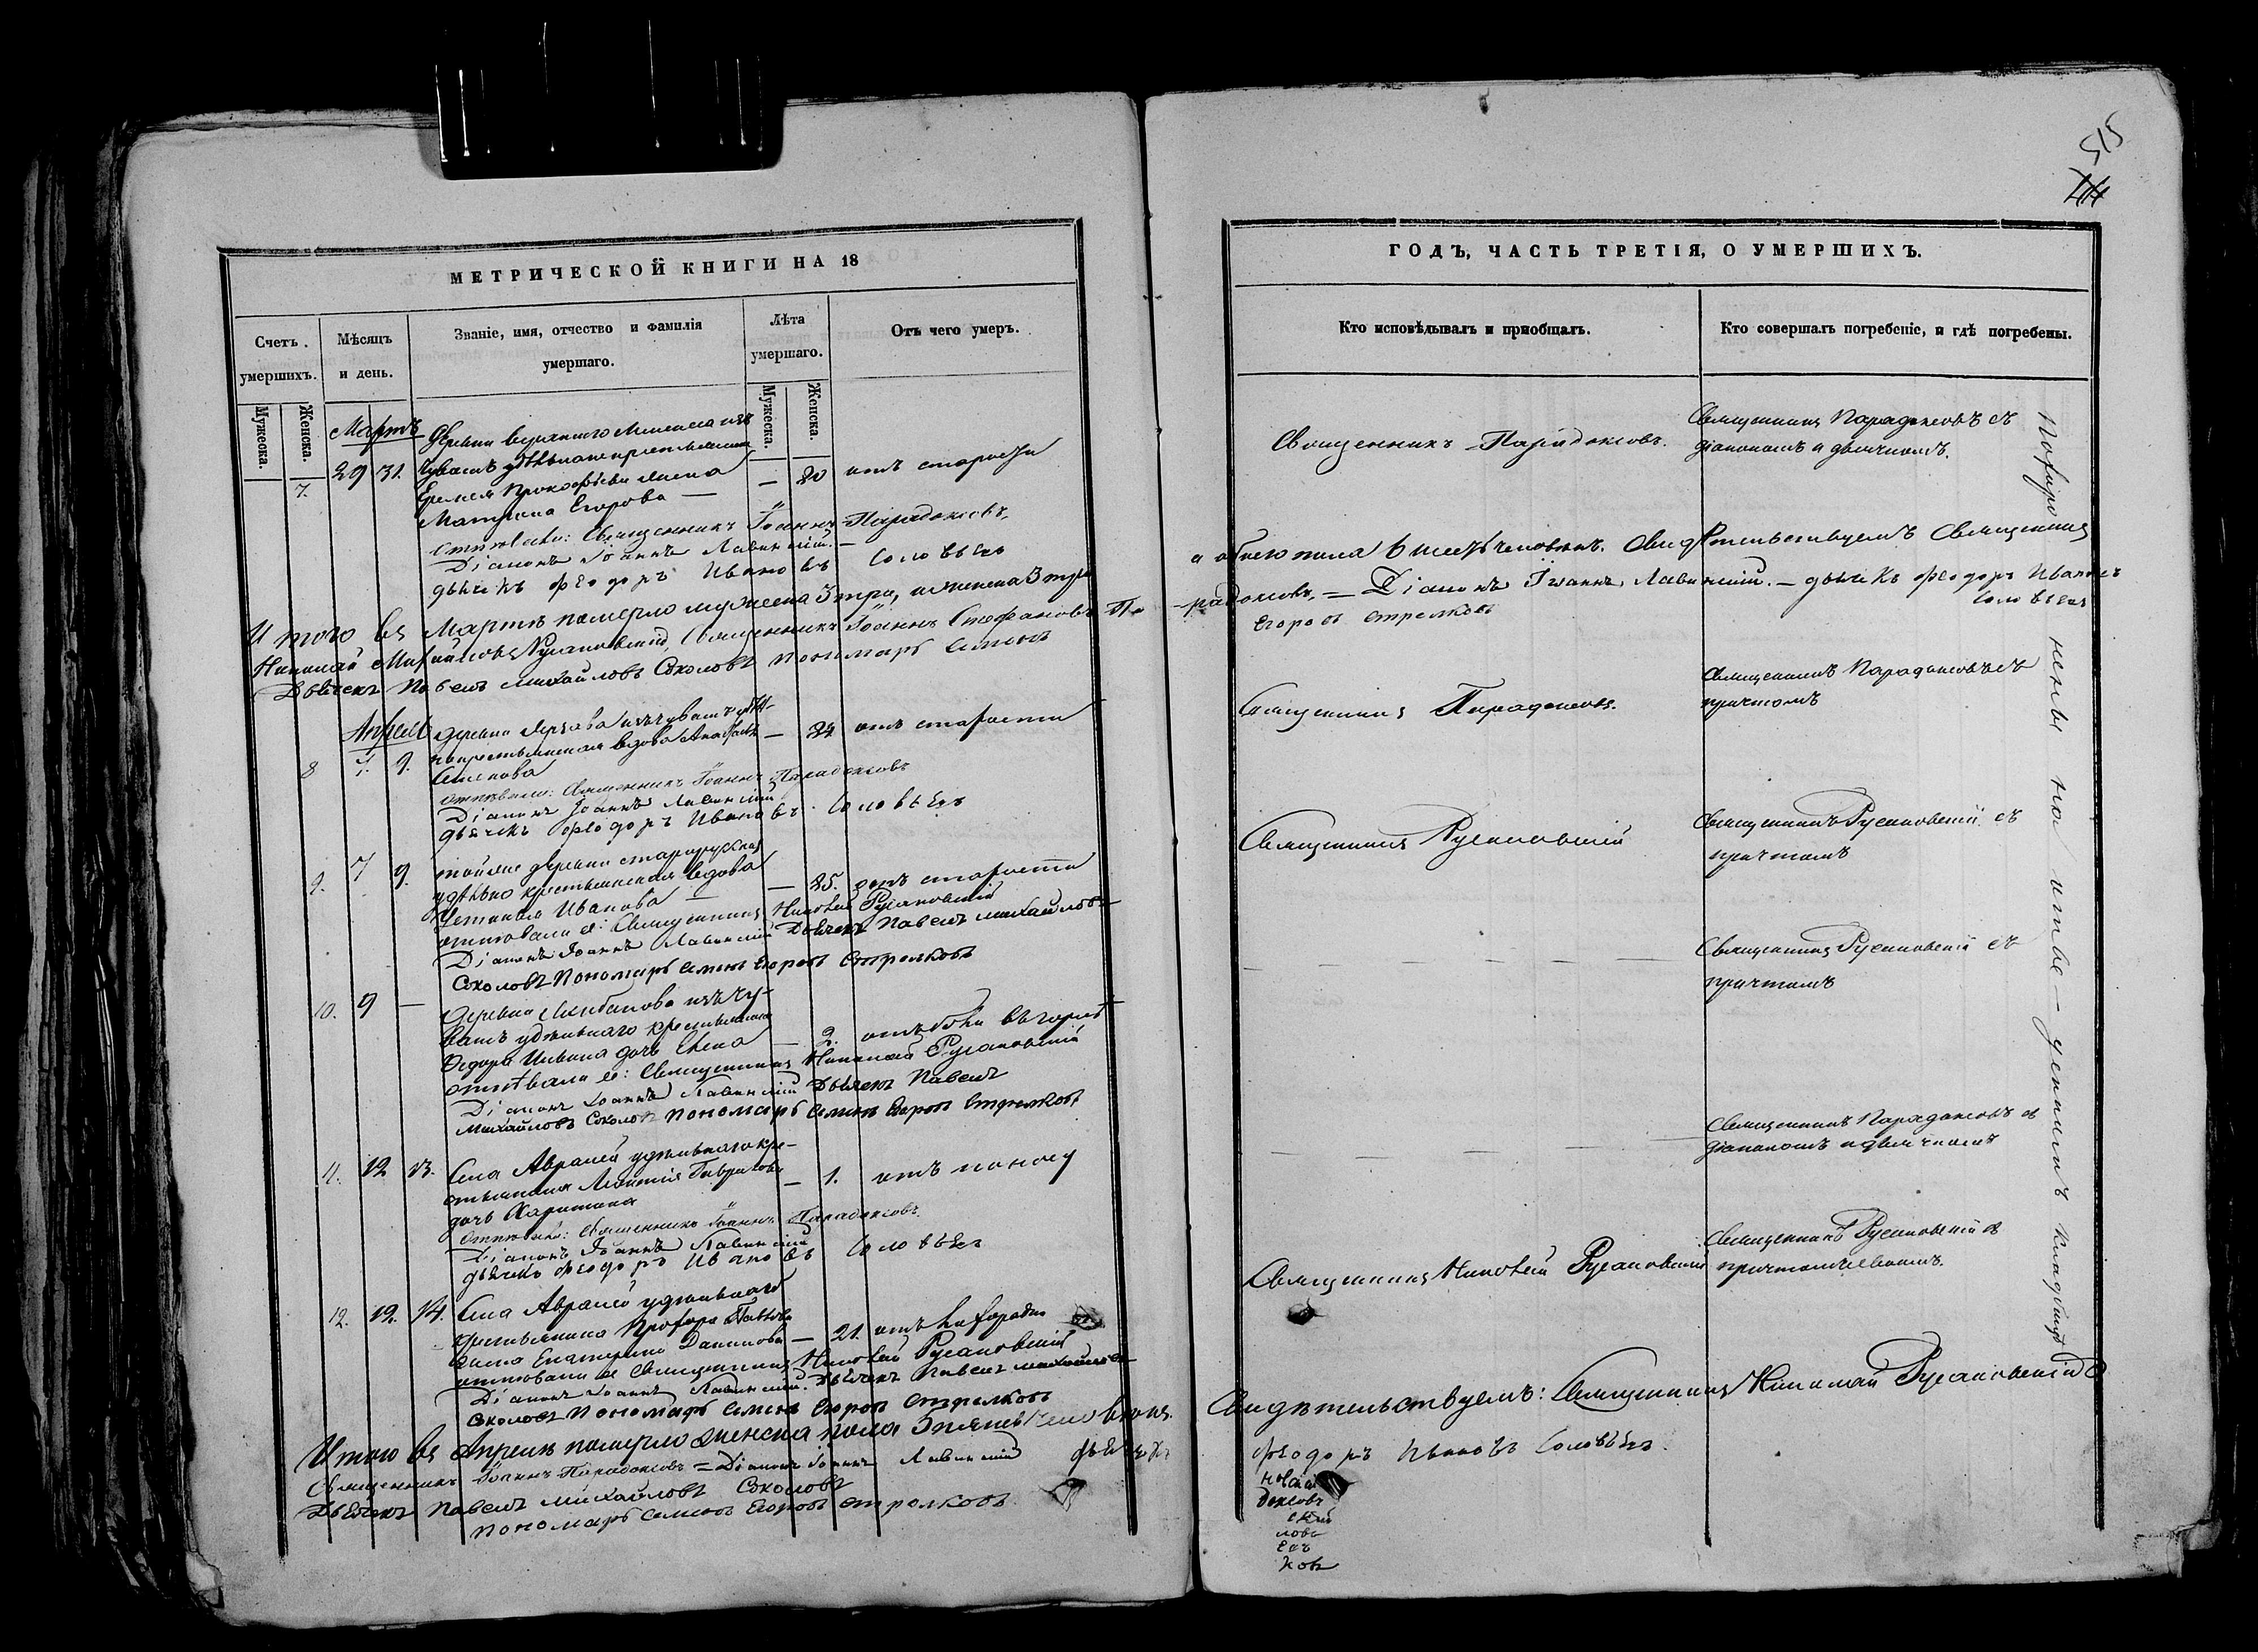 МЕТРИЧЕСКОЙ КНИГИ НА 18
Счетъ умершихъ.
Мѣсяцъ и день.
Званіе, имя, отчество и фамилія умершаго.
Лѣта умершаго.
Отъ чего умеръ.
Мужеска.
Женска.
Мужеска.
Женска.
Мартъ
7. 29 31.
Деревни
Еремея Прокофьева жена
Матрена Егорова — — 80 отъ старости
Отпѣвали: Священникъ Іоаннъ Парадоксовъ.
Діаконъ Іоаннъ Лавинскій. —
дьячекъ Ѳеодоръ Ивановъ Соловьевъ
Итого въ Мартѣ померло мужеска 3 три, а женска 3 три
Николай Михайловъ Русановскій, Священникъ Іоаннъ Стефановъ Па-
Дьячекъ Павелъ Михайловъ Соколовъ пономарь Семенъ
Апрель
8 7. 9. деревни изъ чувашъ
крестьянская вдова — 84 отъ старости
Семенова
отпѣвали: Священникъ Іоаннъ Парадоксовъ
Діаконъ Іоаннъ Лавинскій
дьячекъ Ѳеодоръ Ивановъ Соловьевъ
9. 7 9. той же деревни
удѣльно крестьянская вдова
Устинья Иванова — — 85. отъ старости
отпѣвали е: Священникъ Николай Русановскій
Діаконъ Іоаннъ Лавинскій Дьячекъ Павелъ Михайловъ
Соколовъ Пономарь Семенъ Егоровъ Стрелковъ
10. 9 — деревни изъ чу-
вашъ удѣльнаго крестьянина
Ѳедора дочь Елена — 2. отъ боли въ горлѣ
отпѣвали ее: Священникъ Николай Русановскій
Діаконъ Іоаннъ Лавинскій Дьячекъ Павелъ
Михайловъ Соколовъ пономарь Семенъ Егоровъ Стрелковъ
11. 12 13. Села Авралей удѣльнаго кре-
стьянина Леонтія Гаврилова — 1. отъ поносу
дочь Харитина
Отпѣвали: Священникъ Іоаннъ Парадоксовъ.
Діаконъ Іоаннъ Лавинскій
дьячекъ Ѳеодоръ Ивановъ Соловьевъ
12. 12. 14. Села Авралей удѣльнаго
крестьянина Прохора Павлова
жена Екатерина Данилова — 21. отъ
отпѣвали ее Священникъ Николай Русановскій
Діаконъ Іоаннъ Лавинскій. Дьячекъ Павелъ Михайловъ
Соколовъ Пономарь Семенъ Егоровъ Стрелковъ
Итого въ Апрелѣ померло женска пола 5 пять человѣкъ.
Священникъ Іоаннъ Парадоксовъ = Діаконъ Іоаннъ Лавинскій дьячекъ
Дьячекъ Павелъ Михайловъ Соколовъ
Пономарь Семенъ Егоровъ Стрелковъ
515
ГОДЪ, ЧАСТЬ ТРЕТІЯ, О УМЕРШИХЪ.
Кто исповѣдывалъ и приобщалъ.
Кто совершалъ погребеніе, и гдѣ погребены.
Священникъ Парадоксовъ.
Священникъ Парадоксовъ съ
діакономъ и дьячкомъ.
а обоего пола 6 шесть человѣкъ. Свидѣтельствуемъ Священникъ
радоксовъ. = Діаконъ Іоаннъ Лавинскій. — дьячекъ Ѳеодоръ Ивановъ
Соловьевъ
Егоровъ Стрелковъ
Священникъ Парадоксовъ.
Священникъ Парадоксовъ съ
причтомъ
Священникъ Русановскій
Священникъ Русановскій съ
причтомъ
Священникъ Русановскій съ
причтомъ
Священникъ Парадоксовъ съ
діакономъ и дьячкомъ
Священникъ Николай Русановскій
Священникъ Русановскій съ
причтомъ
Свидѣтельствуемъ: Священникъ Николай Русановскій
Ѳеодоръ Ивановъ Соловьевъ.
доксовъ
скій
ловъ
евъ
ковъ